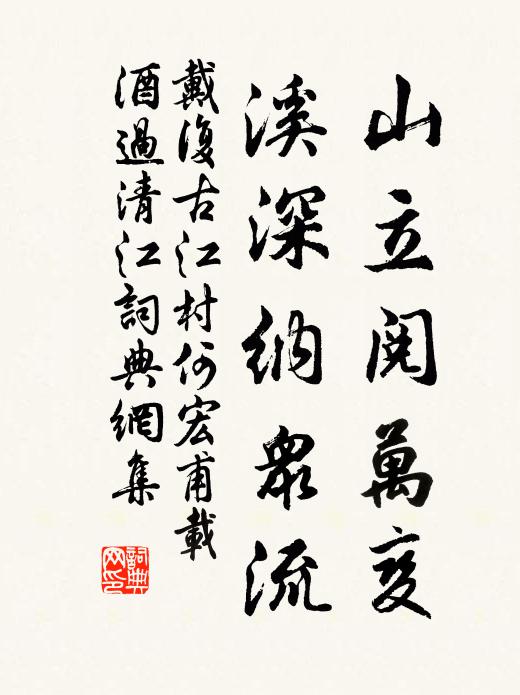 山立閱萬变
溪深納衆流
戴復古江村何宏甫載
酒過清江詞典網集
詞典网印